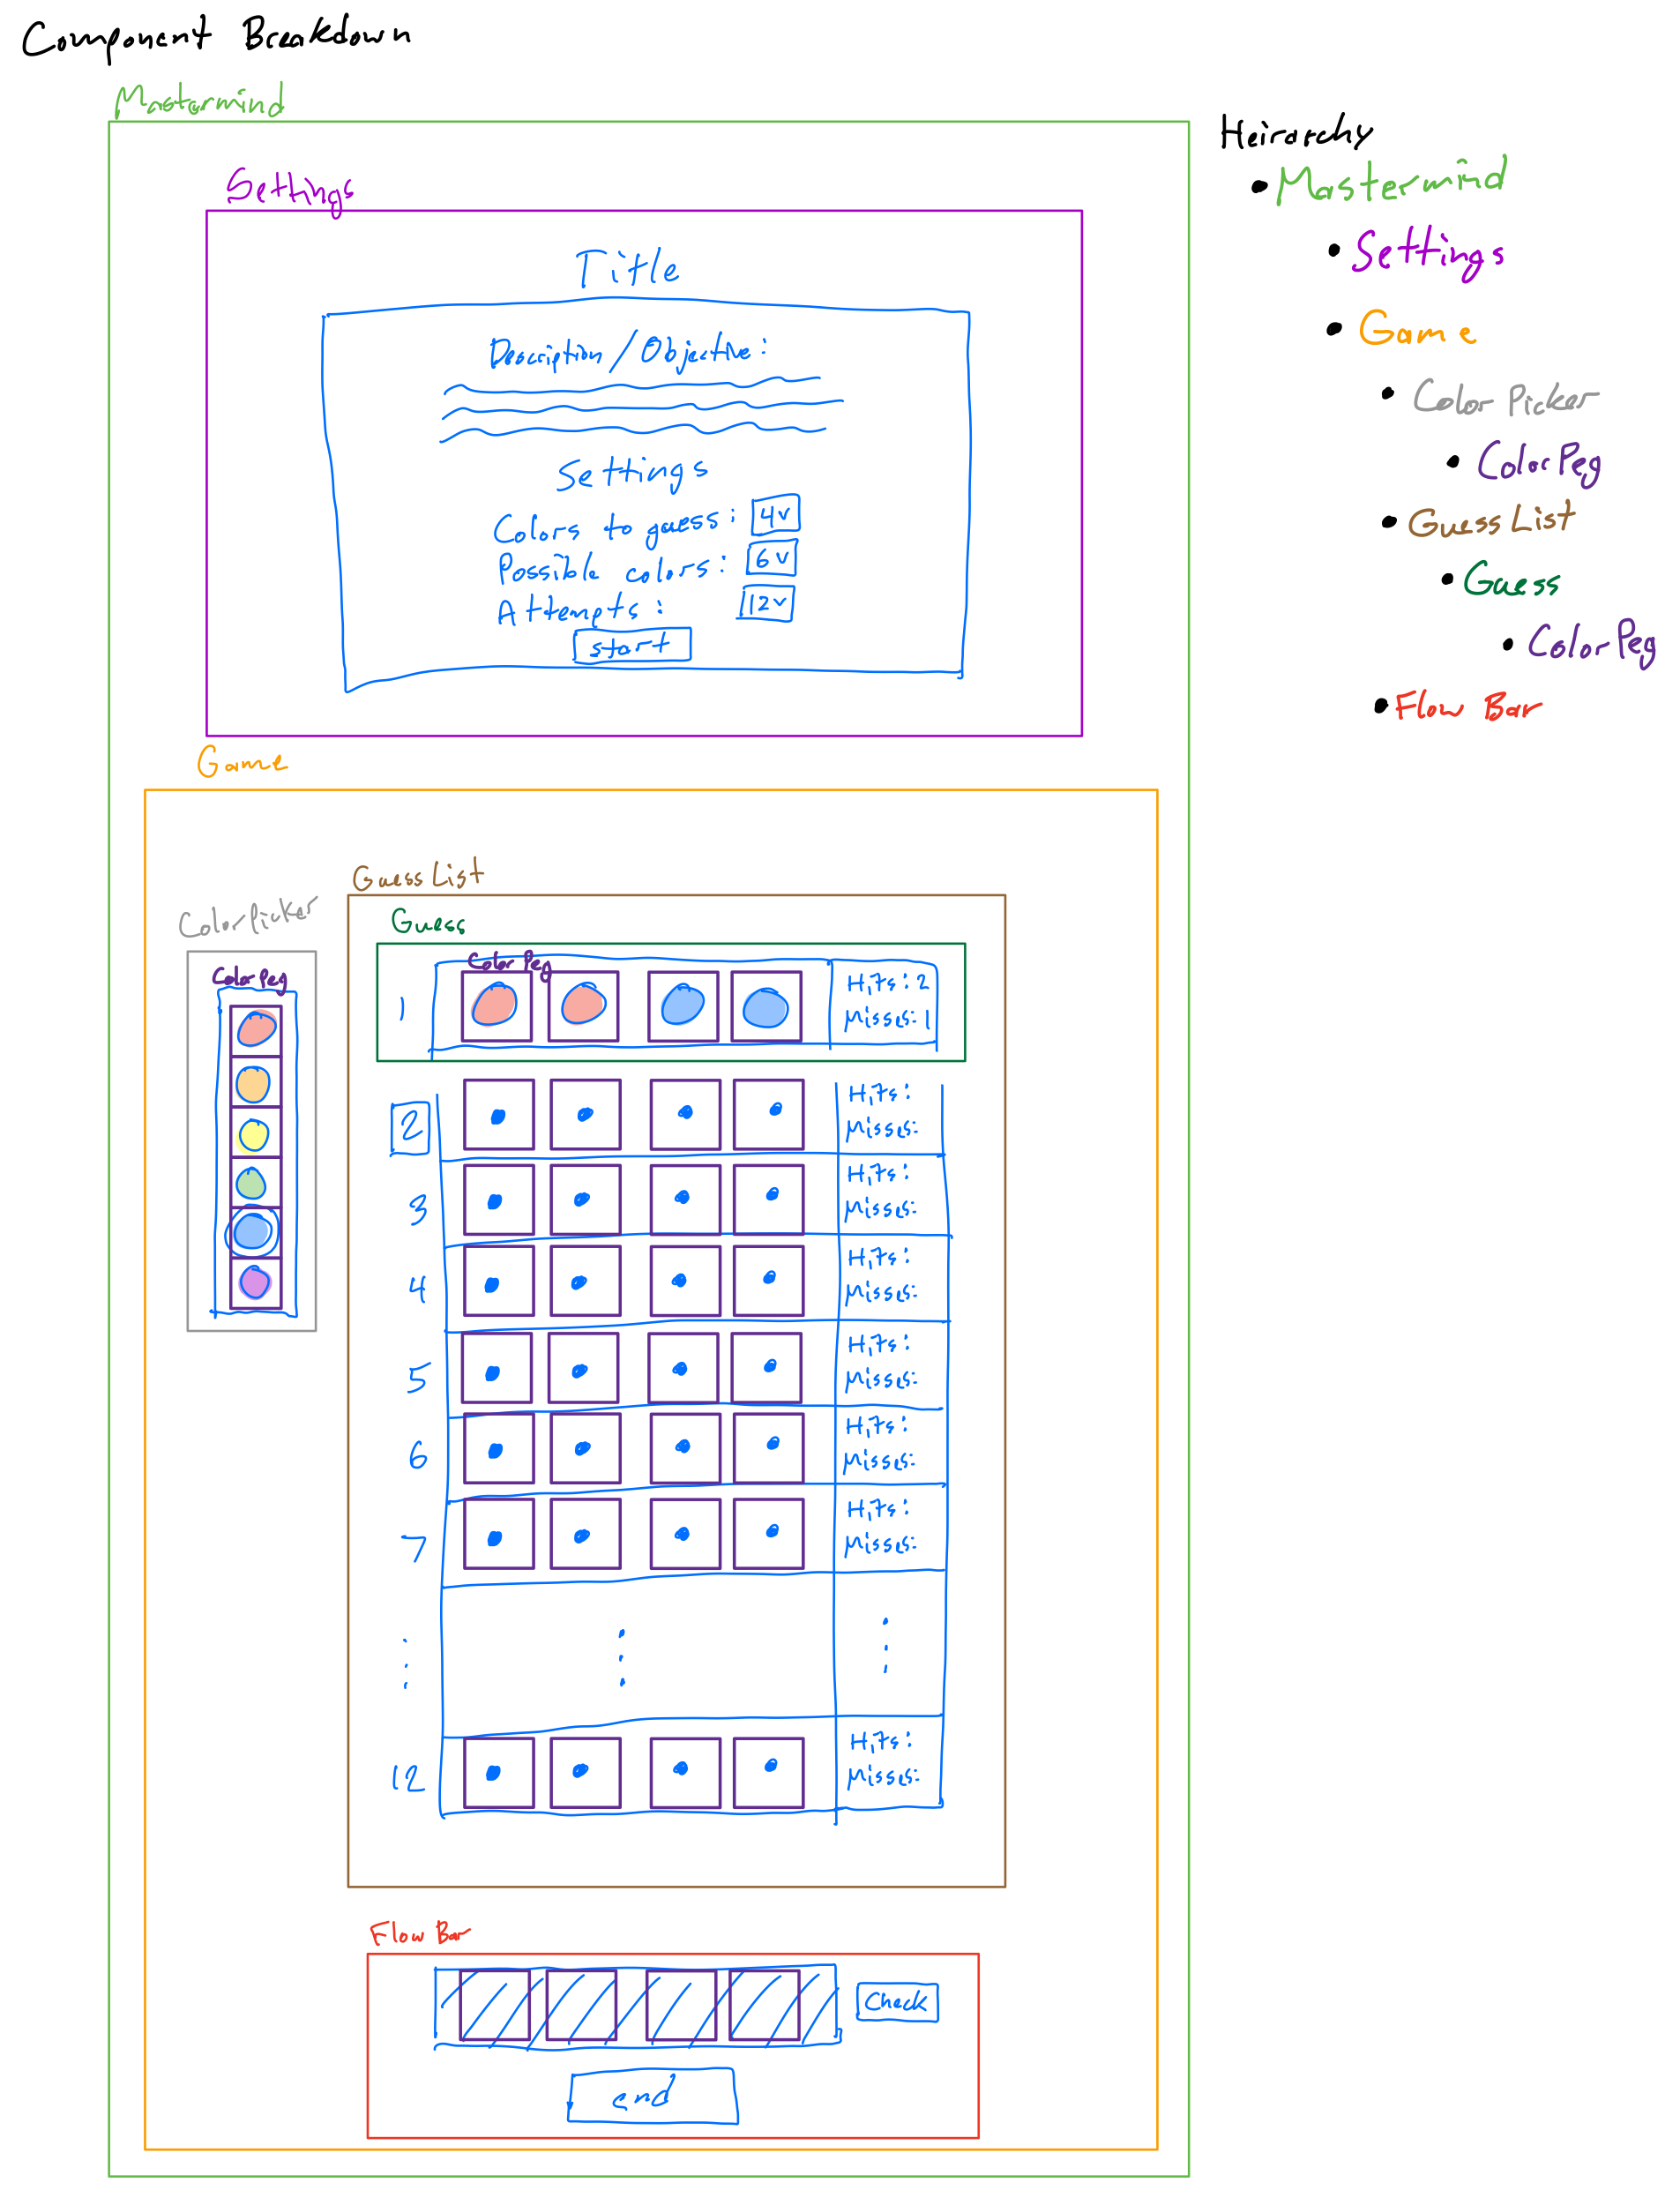 Component Breakdown
Mastermind
Settings
Title
Description/Objective:
Settings
Colors to guess: 4v
Possible colors: 6v
Attempts: 12v
start
Game
Guess List
ColorPicker
Guess
Color Peg
Color Peg
1 Hits: 2
Misses: 1
2 Hits:
Misses:
3 Hits:
Misses:
4 Hits:
Misses:
5 Hits:
Misses:
6 Hits:
Misses:
7 Hits:
Misses:
12 Hits:
Misses:
Flow Bar
Check
end
Heirarchy
• Mastermind
• Settings
• Game
• Color Picker
• Color Peg
• Guess List
• Guess
• Color Peg
• Flow Bar